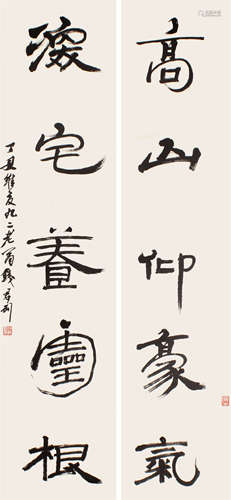 高山仰豪氣
深宅養靈根
丁丑維夏九二老翁錢君匋